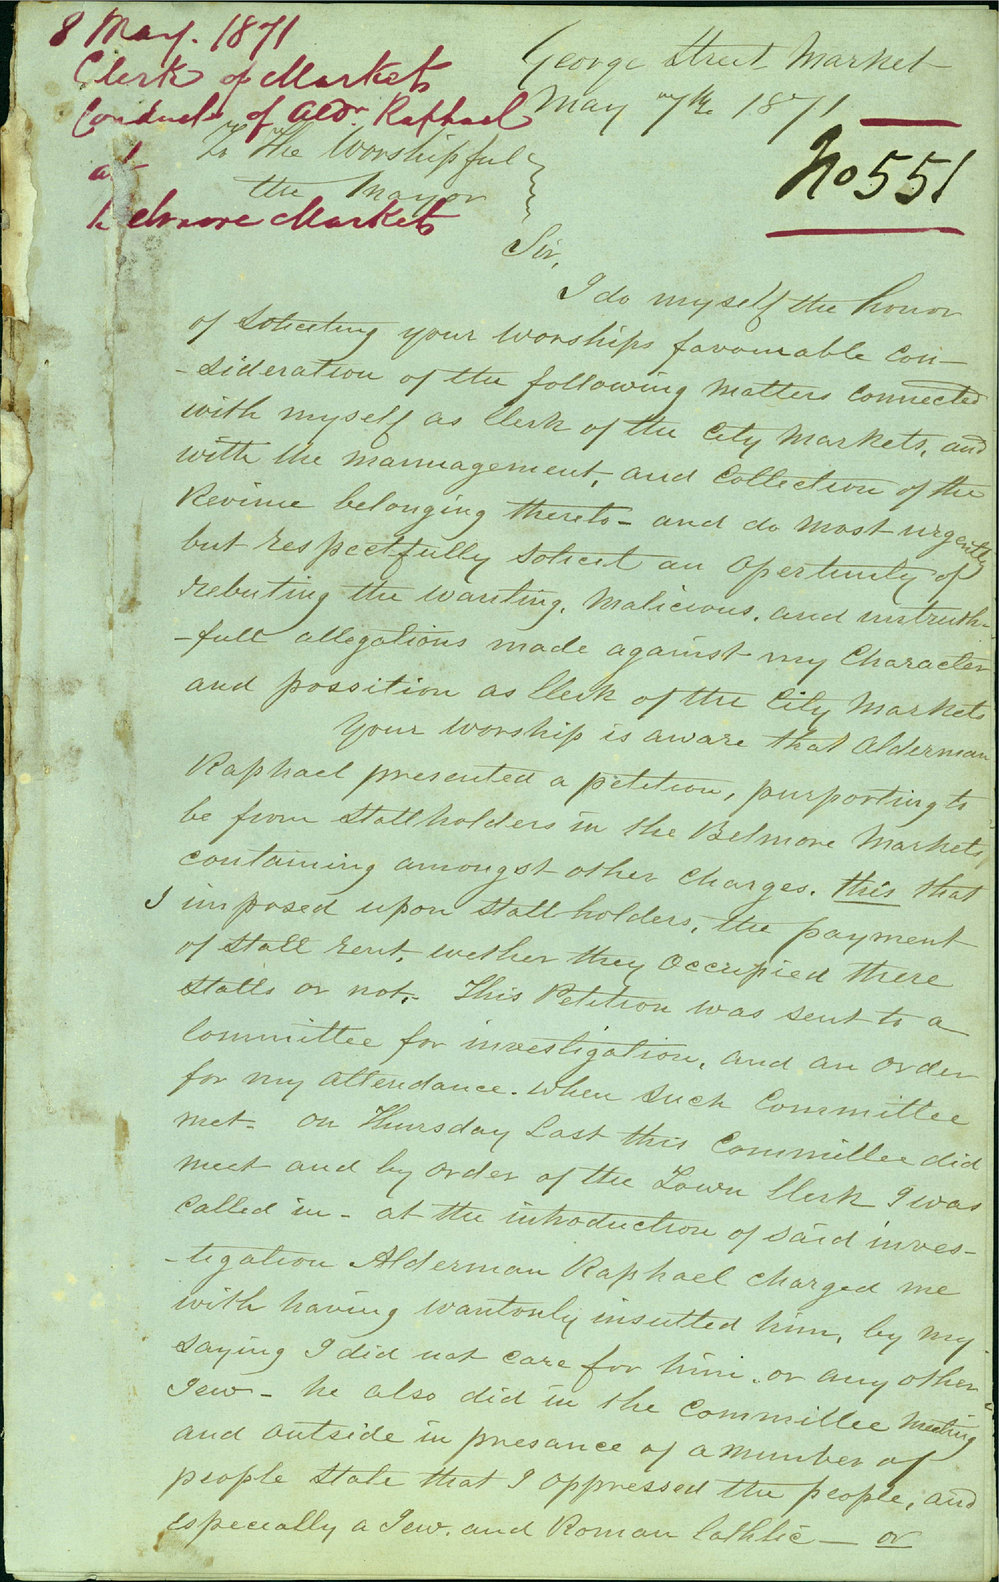 8 May. 1871
Clerk of Markets
Conduct of Aldn Raphael
at
Belmore Markets
George Street Market
May 7th 1871
No 551
To The Worshipful
the Mayor
Sir,
I do myself the honor
of Soliciting your Worships favourable Con-
-sideration of the following Matters Connected
with myself as Clerk of the City Markets, and
with the mannagement, and Collection of the
Revinue belonging thereto - and do most urgently
but respectfully Solicit an Opertunity of
rebuting the wanting, Malicious, and untruth-
-full allegations made against my Character
and possition as Clerk of the City Markets
Your Worship is aware that Alderman
Raphael presented a petition, purporting to
be from Stallholders in the Belmore Markets,
containing amongst other Charges. this that
I imposed upon Stallholders, the payment
of Stall rent, wether they Occupied there
Stalls or not. - This Petition was sent to a
Committee for investigation, and an Order
for my attendance. When Such Committee
met - On Thursday Last this Committee did
meet and by order of the Town Clerk I was
called in - at the introduction of said inves-
-tigation Alderman Raphael charged me
with having wantonly insulted him, by my
saying I did not care for him, or any other
Jew - he also did in the Committee Meeting
and outside in presance of a number of
people State that I oppressed the people, and
especially a Jew. and Roman Cathlic - or